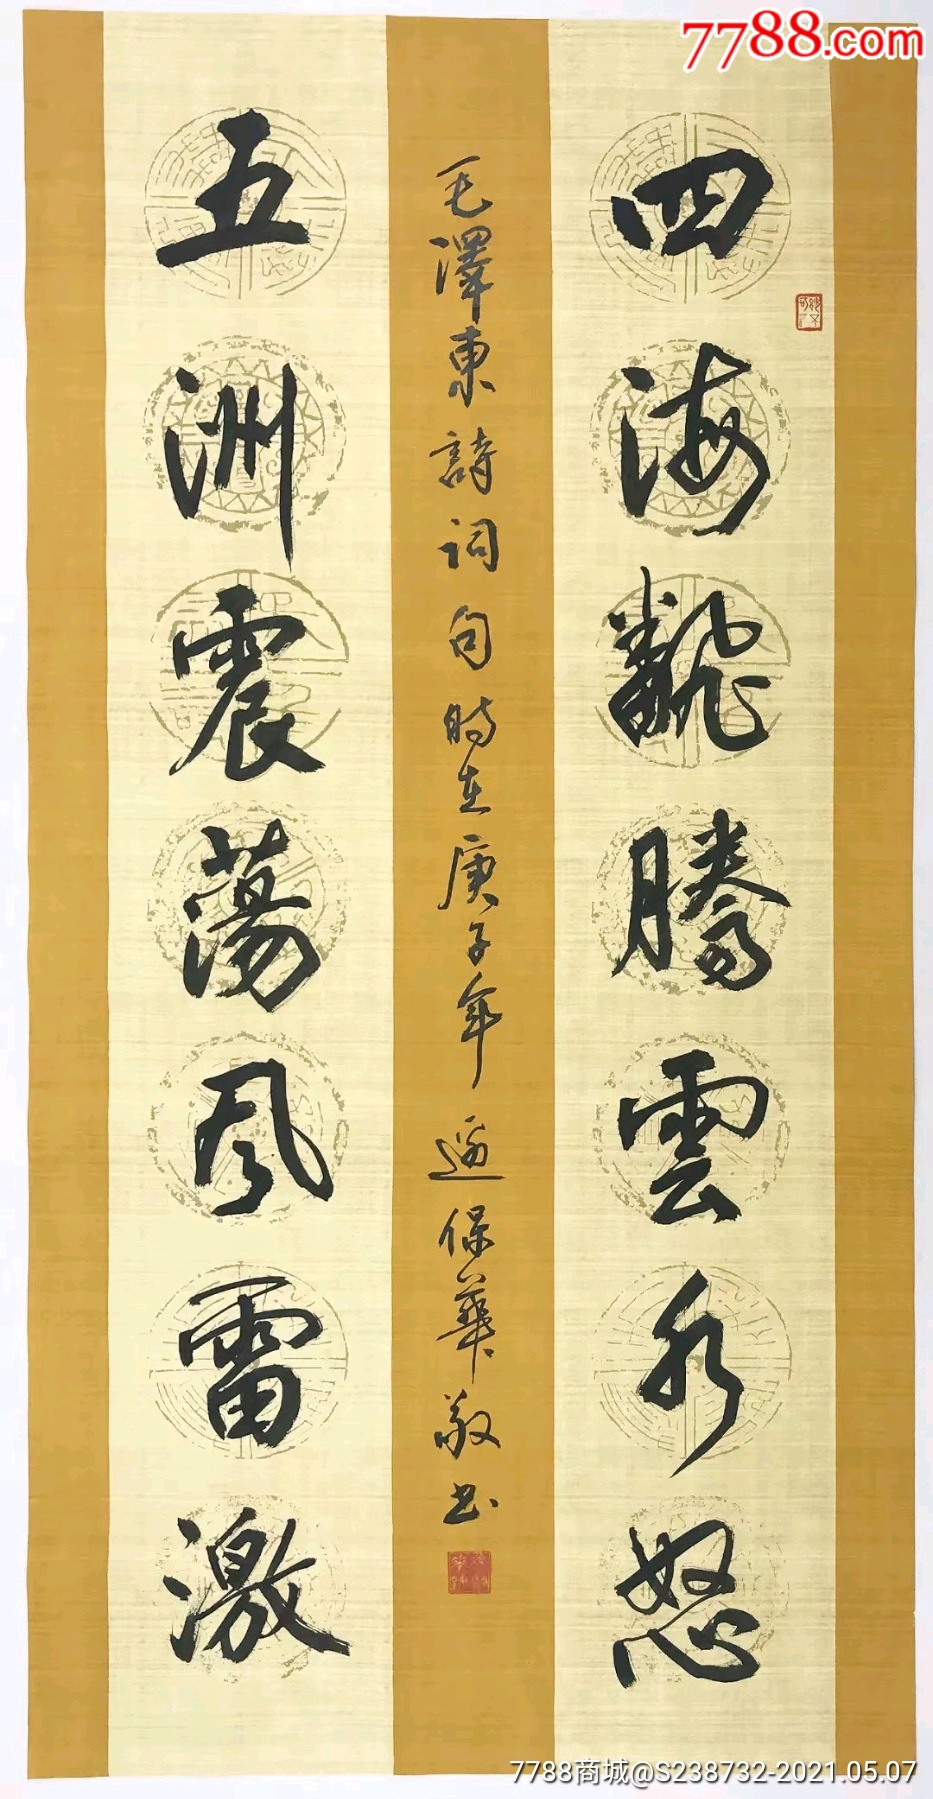 7788.com
四海翻騰雲水怒
毛澤東詩詞句時在庚子年逼保華敬书
五洲震蕩風雷激
7788商城@S238732-2021.05.07